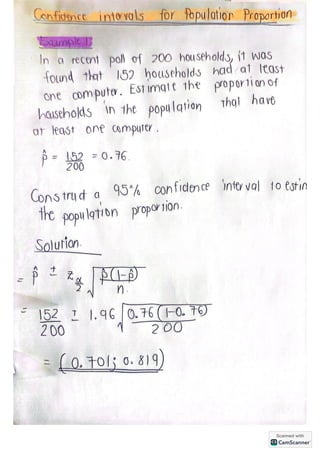 Confidence intervals for Population Proportion
Example 1
In a recent poll of 200 households, it was
found that 152 households had at least
one computer. Estimate the proportion of
households in the population that have
at least one computer.
p̂ = 152/200 = 0.76.
Construct a 95% confidence interval to estim
the population proportion.
Solution.
= p̂ ± z α/2 √(p̂(1-p̂)/n)
= 152/200 ± 1.96 √(0.76(1-0.76)/200)
= (0.701; 0.819)
Scanned with
CamScanner